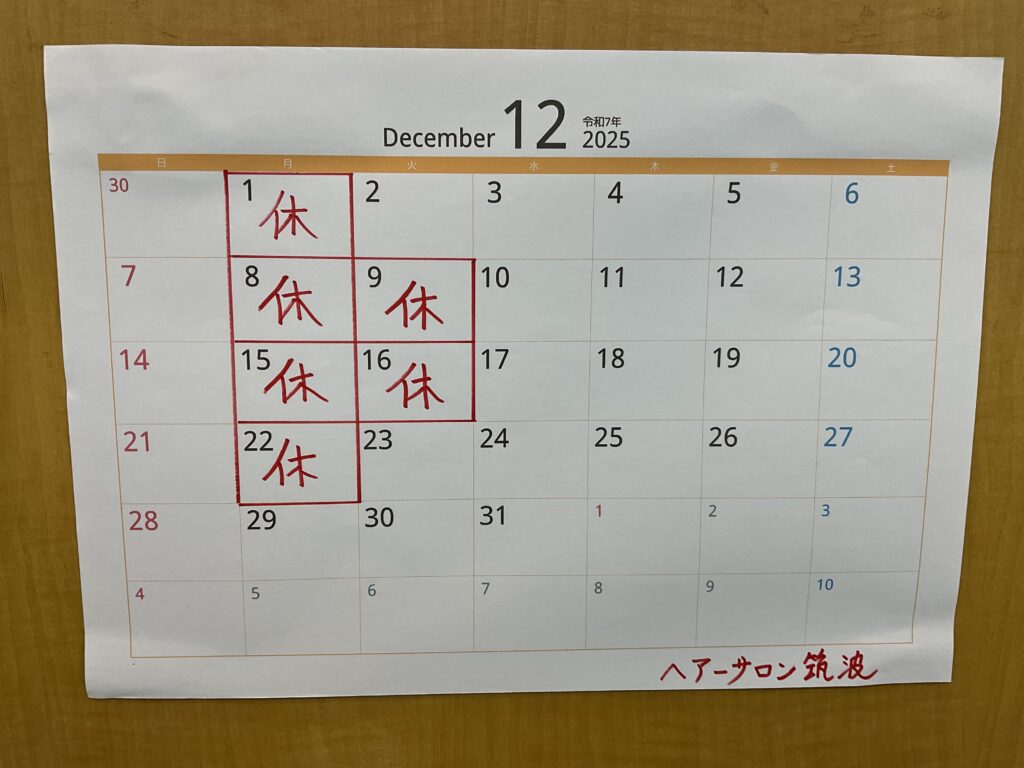 December 12 令和7年 2025
日 月 火 水 木 金 土
30 1 休 2 3 4 5 6
7 8 休 9 休 10 11 12 13
14 15 休 16 休 17 18 19 20
21 22 休 23 24 25 26 27
28 29 30 31 1 2 3
4 5 6 7 8 9 10
ヘアーサロン筑波